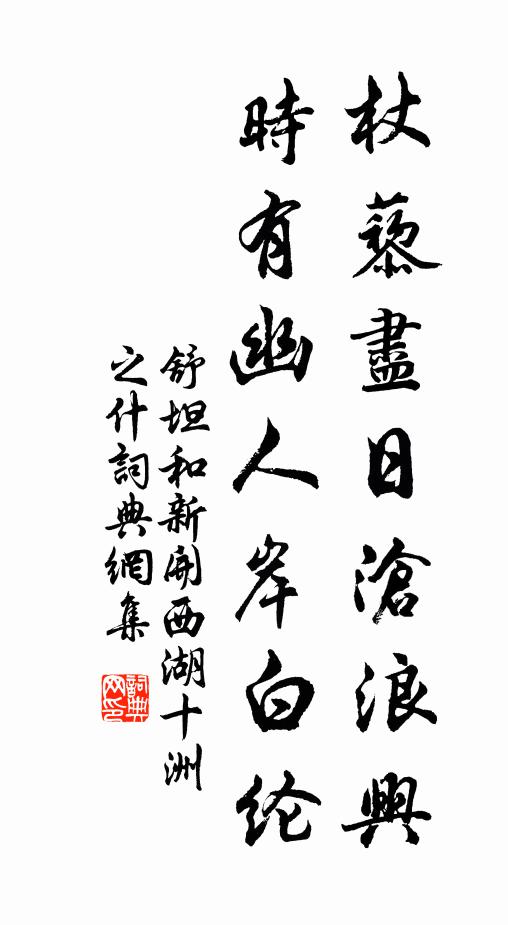 杖藜盡日滄浪興
時有幽人岸白纶
舒坦和新開西湖十洲
之什詞典網集
詞典网印